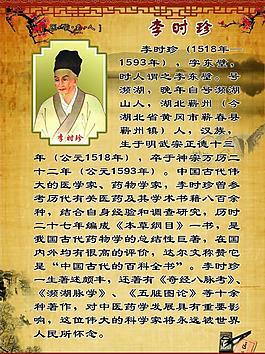 李时珍
李时珍（1518年—
1593年），字东璧，
时人谓之李东璧。号
濒湖，晚年自号濒湖
山人，湖北蕲州（今
湖北省黄冈市蕲春县
蕲州镇）人，汉族，
李时珍
生于明武宗正德十三
年（公元1518年），卒于神宗万历二
十二年（公元1593年）。中国古代伟
大的医学家、药物学家，李时珍曾参
考历代有关医药及其学术书籍八百余
种，结合自身经验和调查研究，历时
二十七年编成《本草纲目》一书，是
我国古代药物学的总结性巨著，在国
内外均有很高的评价，达尔文称赞它
是“中国古代的百科全书”。李时珍
一生著述颇丰，还著有《奇经八脉考》、
《濒湖脉学》、《五脏图论》等十余
种著作，对中医药学发展具有重要影
响，这位伟大的科学家将永远被世界
人民所怀念。